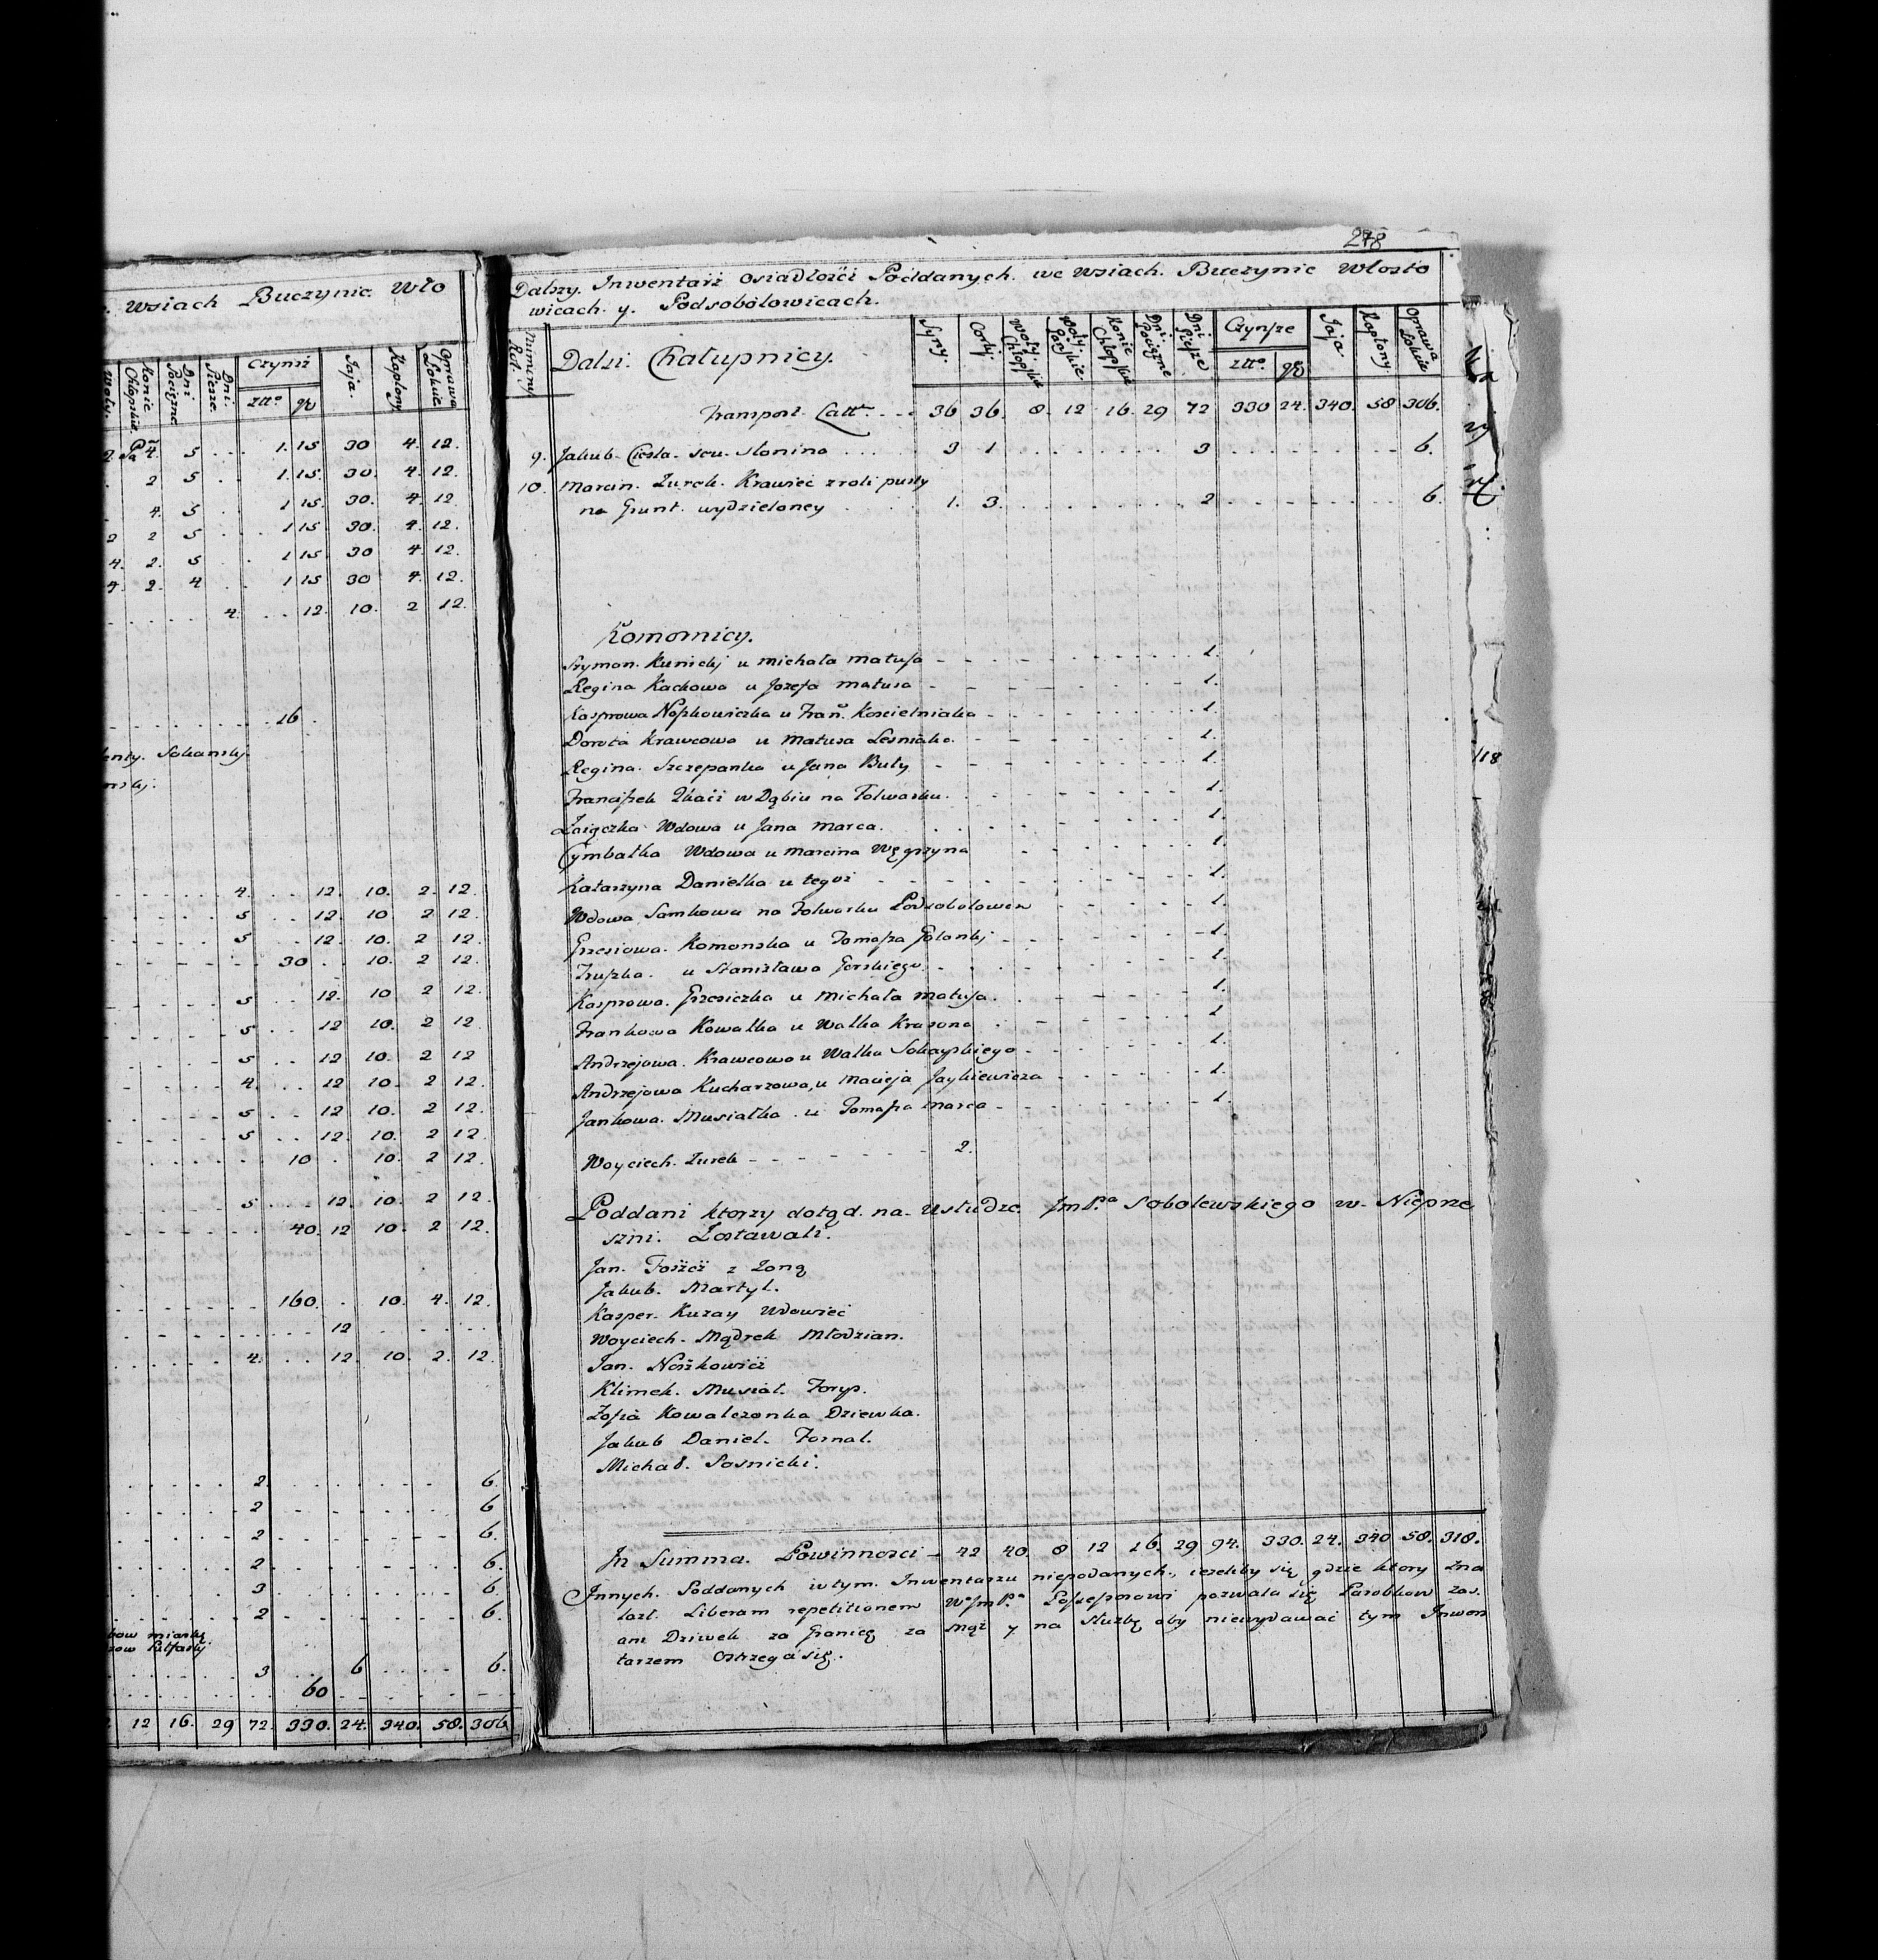 . Wsiach Buczynie. Wło
Woły.
Konie Chłopskie.
Dni Pociezne
Dni. Piesze.
Czynsz
złto
gr
Jaja.
Kapłony
Oprawa Łokcie
2. 4. 5 . . . 1. 15 30 4. 12.
. 2 5 . . 1. 15. 30. 4. 12.
. 4. 5 . 1 15. 30. 4. 12
2 2 5 . . . 1 15 30. 4. 12.
4. 2. 5 . . 1 15 30 4. 12.
4. 2. 4 . . 1 15 30 4. 12.
. . . . . 4. . . 12. 10. 2 12.
. . . . . . . . . . 16.
enty. Sokansky
nskj.
. . . . . . 4. . . 12. 10. 2. 12.
. . . . . 5 . . 12. 10 2 12.
. . . . . 5 . 12. 10. 2 12.
. . . . . . 30 . . 10. 2 12.
. . . . . 5 . . 12. 10 2 12.
. . . . . 5 . . . 12 10. 2 12.
. . . . . 5 . . 12 10. 2 12
. . . . . 4. . . 12 10. 2 12.
. . . . . 5 . . 12 10. 2 12.
. . . . . 5 . . 12. 10. 2 12.
. . . . . . 10 . 10. 2 12.
5 . . . 12. 10. 2 12.
. . . . . . 40. 12 10. 2 12.
. . . . . . 160. . 10. 4. 12.
. . . . . . . . 12 . . . . .
. . . . . 4. . . 12. 10. 2. 12.
. . . . . 2. . . . . . . 6.
. . . . . 2 . . . . . . 6
. . . . . 2 . . . . . . 6.
. . . . . 2 . . . . . . 6.
. . . . . 3 . . . . . . 6.
. . . . . 2 . . . . . . 6.
. . . . . 3 . . 6 . . . . 6.
. . . . . . . 60 . . . . .
12 16. 29 72. 330. 24. 340. 58. 306
278
Dalszy. Inwentarz osiadłości Poddanych. we wsiach. Buczynie Włosto
wicach. y. Podsobolowicach.
Numery Rol.
Dalsi. Chałupnicy.
Syny.
Corky.
Woły. Chłopskie
Woły. Pańskie
Konie Chłopskie
Dni Pociezne
Dni Piesze.
Czynsze
złto
gr
Jaja.
Kapłony.
Oprawa Łokcie
Transport Latt . . . 36 36. 8. 12 16. 29 72 330 24. 340. 58 306.
9. Jakub. Ciesla. seu. Słonina . . . . . 3 1 . . . . . 3 . . . . . . 6.
10. Marcin. Zurek. Krawiec z roli pusty
na Grunt. wydzieloney . . . 1. 3. . . . . . 2 . . . . . . 6.
Komornicy.
Szymon. Kunickj u Michała Matusa - - - - - 1.
Regina Kackowa u Jozefa Matusa - - - - - 1.
Kasprowa Noskowiczka u Fran. Koscielniaka - - - - 1.
Dorota Krawcowa u Matusa Lesniaka. - - - - 1.
Regina. Szczepanka u Jana Buły - - - - - 1.
Franciszek Tkacz w Dąbiu na Folwarku. - - - - 1.
Zaięczka Wdowa u Jana Marca. . . . . . 1.
Cymbałka Wdowa u Marcina Węgrzyna - - - - 1.
Katarzyna Danielka u tegoz - - - - - 1.
Wdowa Samkowa na Folwarku Podsobolowem - - - - 1.
Grzesiowa. Komonska u Tomasza Golankj - - - - 1.
Fruzka. u Stanisława Gorskiego. - - - - 1.
Kasprowa. Grzesiczka u Michała Matusa. - - - - 1.
Frankowa Kowalka u Walka Krasona . - - - - 1
Andrzejowa. Krawcowa u Walka Sokayskiego - - - - 1.
Andrzejowa Kucharzowa, u Macieja Jaykiewicza - - - - 1.
Jankowa. Musiałka u Tomasza Marca - - - - 1.
Woyciech. Zurek - - - - - - 2.
Poddani ktorzy dotąd. na. usłudze. Jm Pa Sobolewskiego w. Niepre
szni. Zostawali.
Jan. Foszcz z Zoną
Jakub. Martyl.
Kasper. Kuzay Wdowiec
Woyciech. Mądrek Młodzian.
Jan. Noszkowicz
Klimek. Musiał. Forys.
Zofia Kowalczonka Dziewka.
Jakub Daniel. Fornal.
Michał. Sosnicki.
In Summa. Powinnosci - 42 40. 8 12 16. 29 94. 330. 24. 340 58. 318.
Innych. Poddanych w tym. Inwentarzu niepodanych., iezeliby się gdzie ktory zna
lazł. Liberam repetitionem WJmPa Possessorowi pozwala się Parobkow zas.
ani Dziwek za Granicę za Mąz y na Służbę aby niewydawać tym Inwen
tarzem Ostrzega się.
118